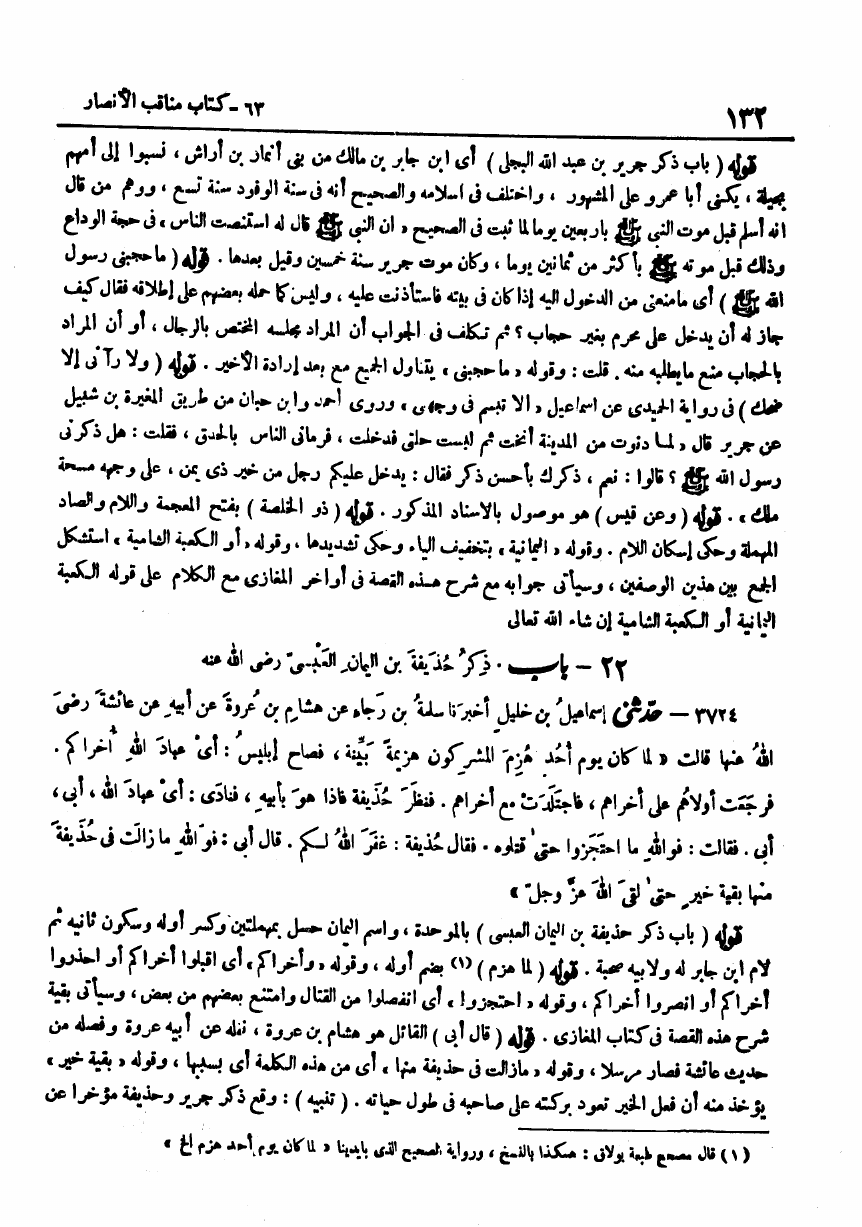 ١٣٢ ٦٣ - كتاب مناقب الأنصار
قوله ( باب ذكر جرير بن عبد الله البجلى ) أى ابن جابر بن مالك من بنى أنمار بن أراش ، نسبوا إلى أمهم
بجيلة ، يكنى أبا عمرو على المشهور ، واختلف فى اسلامه والصحيح أنه فى سنة الوفود سنة تسع ، ووهم من قال
انه أسلم قبل موت النبى ﷺ بار بعين يوما لما ثبت فى الصحيح « ان النبى ﷺ قال له استنصت الناس » فى حجة الوداع
وذلك قبل موته ﷺ بأكثر من ثمانين يوما ، وكان موت جرير سنة خمسين وقيل بعدها . قوله ( ما حجبنى رسول
الله ﷺ ) أى مامنعنى من الدخول اليه إذا كان فى بيته فاستأذنت عليه ، وليس كما حمله بعضهم على إطلاقه فقال كيف
جاز له أن يدخل على محرم بغير حجاب ؟ ثم تكلف فى الجواب أن المراد مجلسه المختص بالرجال ، أو أن المراد
بالحجاب منع مايطلبه منه . قلت : وقوله « ما حجبنى » يتناول الجميع مع بعد إرادة الأخير . قوله ( ولا رآنى إلا
ضحك ) فى رواية الحميدى عن اسماعيل « الا تبسم فى وجهى » وروى أحمد وابن حبان من طريق المغيرة بن شبيل
عن جرير قال « لما دنوت من المدينة أنخت ثم لبست حلتى فدخلت ، فرمانى الناس بالحدق ، فقلت : هل ذكرنى
رسول الله ﷺ ؟ قالوا : نعم ، ذكرك بأحسن ذكر فقال : يدخل عليكم رجل من خير ذى يمن ، على وجهه مسحة
ملك » . قوله ( وعن قيس ) هو موصول بالاسناد المذكور . قوله ( ذو الخلصة ) بفتح المعجمة واللام والصاد
المهملة وحكى إسكان اللام . وقوله « اليمانية » بتخفيف الياء وحكى تشديدها ، وقوله « أو الكعبة الشامية » استشكل
الجمع بين هذين الوصفين ، وسيأتى جوابه مع شرح هذه القصة فى أواخر المغازى مع الكلام على قوله الكعبة
اليمانية أو الكعبة الشامية إن شاء الله تعالى
٢٢ - باب . ذِكرُ حُذَيفةَ بن اليمانِ العَبْسىّ رضى الله عنه
٣٧٢٤ - حدّثنى إسماعيلُ بن خليلٍ أخبرَنا سلمةُ بن رَجاء عن هشامِ بن عُروةَ عن أبيهِ عن عائشةَ رضىَ
اللهُ عنها قالت « لما كان يوم أُحُدٍ هُزِمَ المشركون هزيمةً بَيِّنة ، فصاح إبليسُ : أىْ عبادَ اللهِ أُخراكم .
فرجَعَت أولاهُم على أُخراهم ، فاجتَلَدَتْ مع أخراهم . فنظَرَ حُذَيفة فاذا هوَ بأبيهِ ، فنادَى : أىْ عبادَ الله ، أبى ،
أبى . فقالت : فوَاللهِ ما احتَجَزوا حتىٰ قتلوه . فقال حُذيفة : غفرَ اللهُ لكم . قال أبى : فوَاللهِ ما زالَت فى حُذَيفةَ
منها بقية خيرٍ حتىٰ لقىَ اللهَ عزَّ وجلّ »
قوله ( باب ذكر حذيفة بن اليمان العبسى ) بالموحدة ، واسم اليمان حسل بمهملتين وكسر أوله وسكون ثانيه ثم
لام ابن جابر له ولابيه صحبة . قوله ( لما هزم ) (١) بضم أوله ، وقوله « وأخراكم » أى اقبلوا أخراكم أو احذروا
أخراكم أو انصروا أخراكم ، وقوله « احتجزوا » أى انفصلوا من القتال وامتنع بعضهم من بعض ، وسيأتى بقية
شرح هذه القصة فى كتاب المغازى . قوله ( قال أبى ) القائل هو هشام بن عروة ، نقله عن أبيه عروة وفصله من
حديث عائشة فصار مرسلا ، وقوله « مازالت فى حذيفة منها » أى من هذه الكلمة أى بسببها ، وقوله « بقية خير »
يؤخذ منه أن فعل الخير تعود بركته على صاحبه فى طول حياته . ( تنبيه ) : وقع ذكر جرير وحذيفة مؤخرا عن
(١) قال مصحح طبعة بولاق : هكذا بالنسخ ، ورواية الصحيح الذى بايدينا « لما كان يوم أحد هزم الخ »